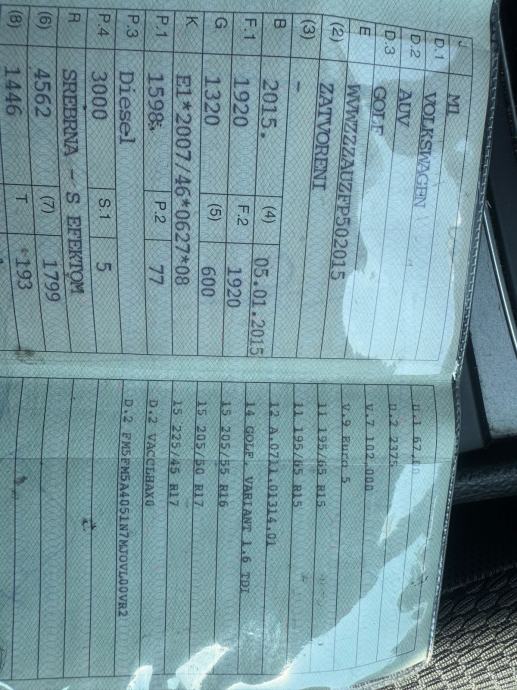 J M1
D.1 VOLKSWAGEN
D.2 AUV
D.3 GOLF
E WVWZZZAUZFP502015
(2) ZATVORENI
(3) -
B 2015. (4) 05.01.2015
F.1 1920 F.2 1920
G 1320 (5) 600
K E1*2007/46*0627*08
P.1 1598 P.2 77
P.3 Diesel
P.4 3000 S.1 5
R SREBRNA - S EFEKTOM
(6) 4562 (7) 1799
(8) 1446 T 193
2375
V.7 102.000
V.9 Euro 5
11 195/65 R15
11 195/65 R15
12 A.07X1.01314.01
14 GOLF, VARIANT 1.6 TDI
15 205/55 R16
15 205/50 R17
15 225/45 R17
D.2 VACCLHAX0
D.2 FM5FM5A4051N7MJOVL00VR2